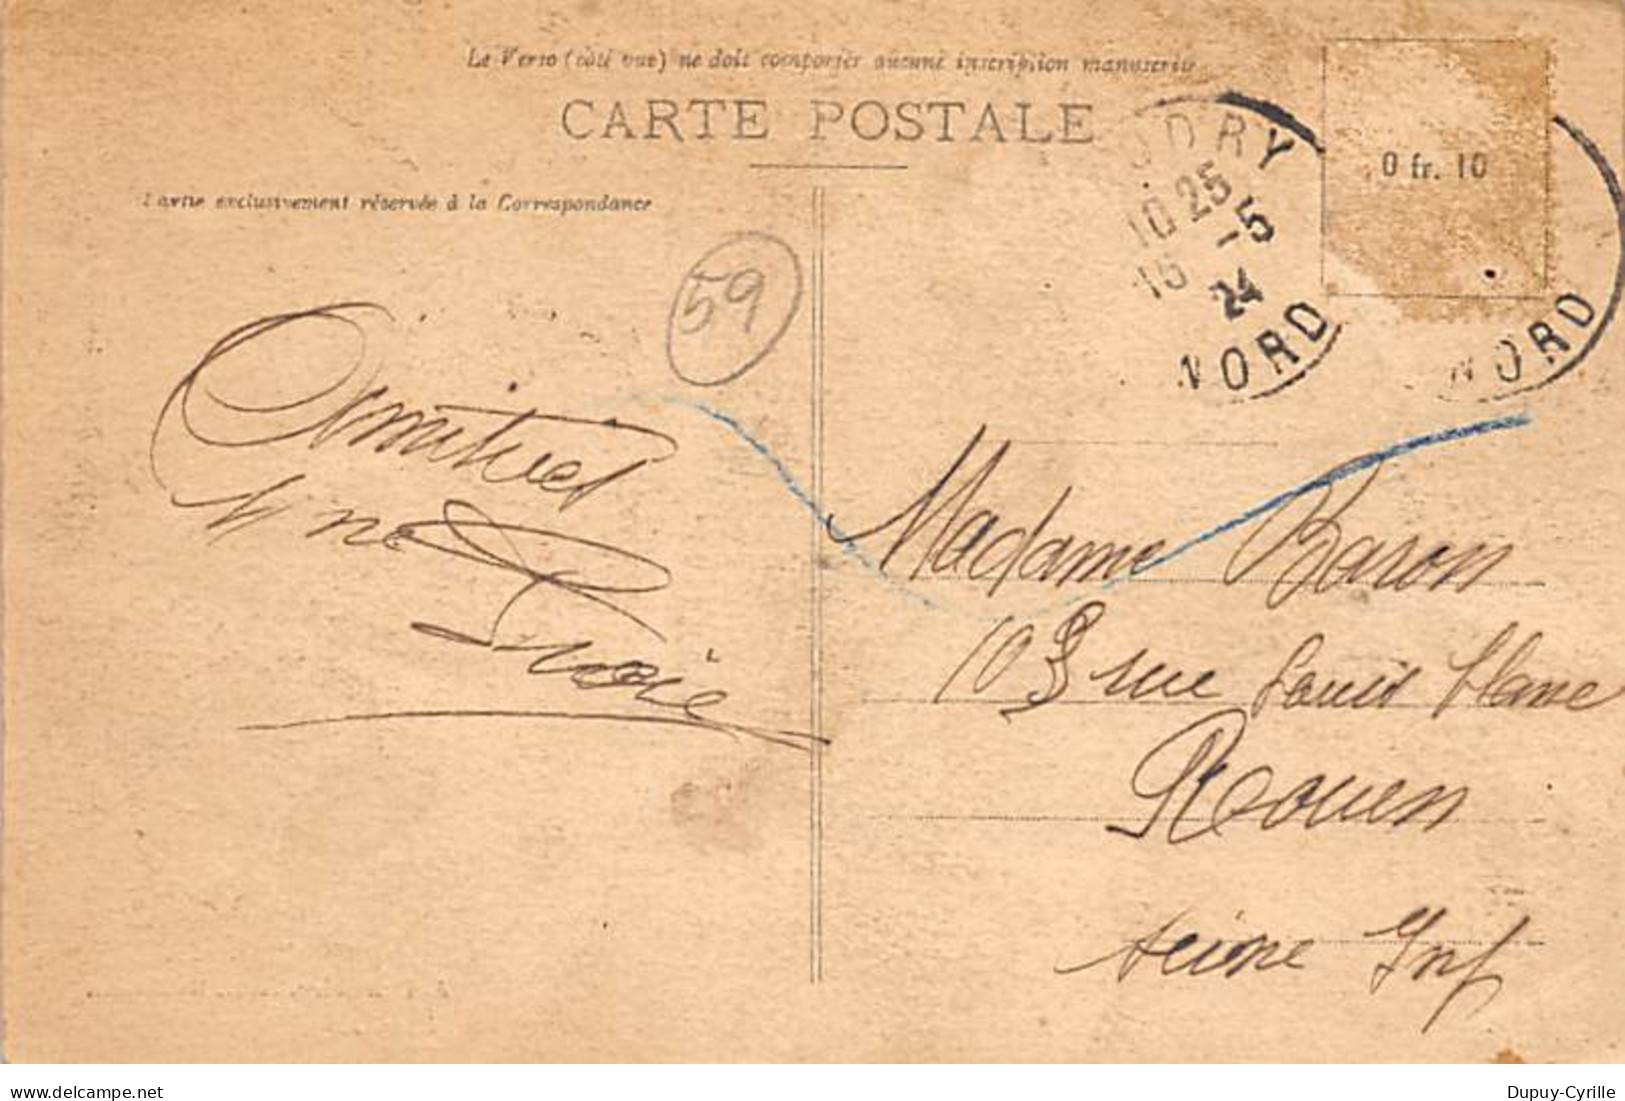 Le Verso (côté vue) ne doit comporter aucune inscription manuscrite
CARTE POSTALE
Partie exclusivement réservée à la Correspondance
ODRY
10 25
15 -5
24
NORD
0 fr. 10
NORD
59
Amitiés
Madame Baron
103 rue Louis Blanc
Rouen
Seine Inf
delcampe.net
Dupuy-Cyrille